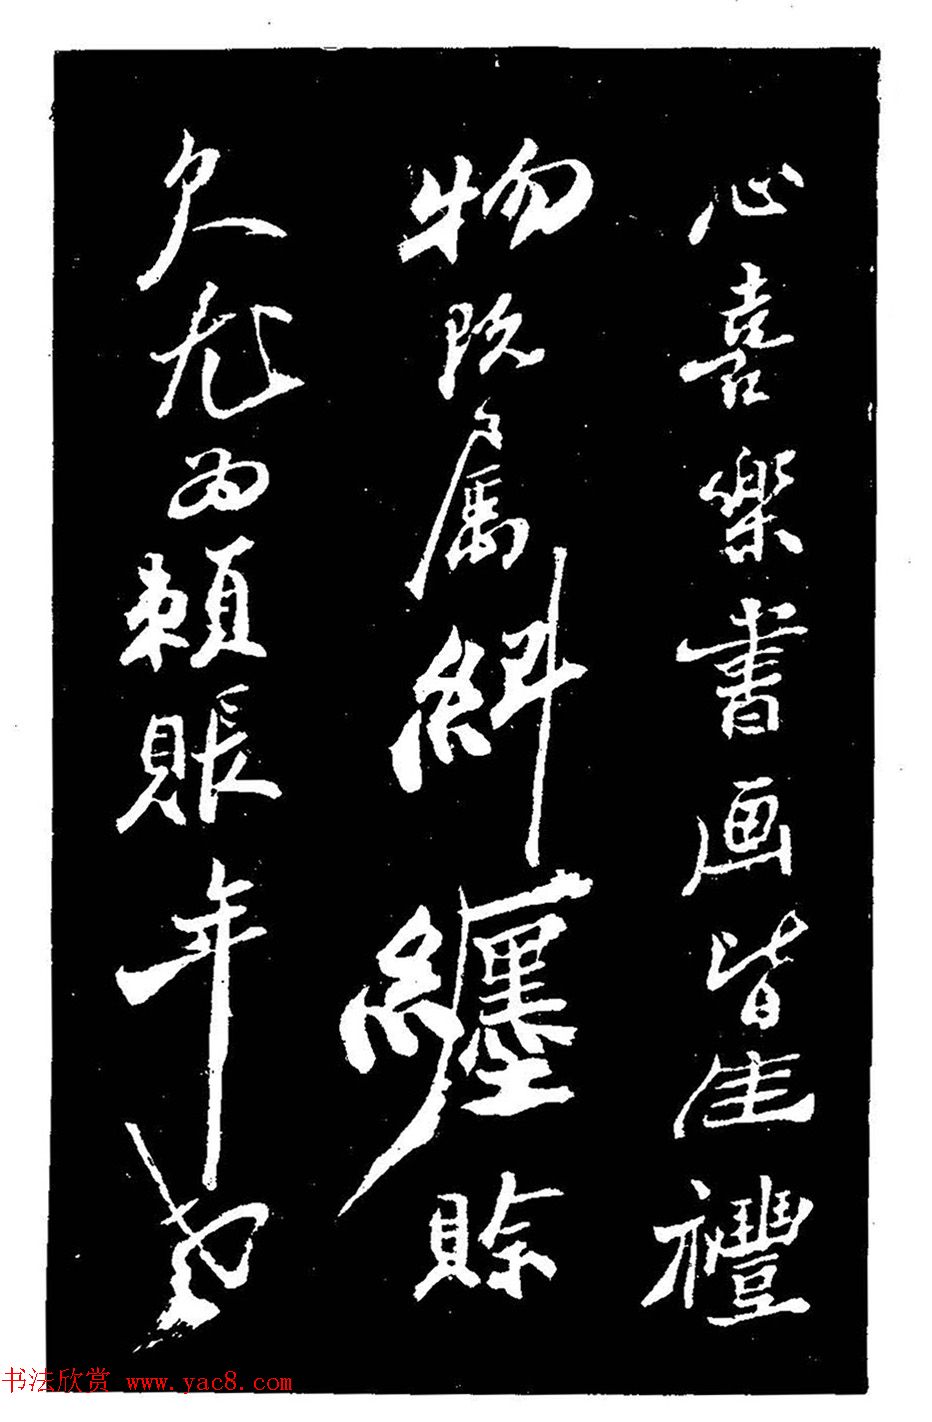 心喜樂書画皆佳禮
物既属糾纏賒
欠尤为賴賬年老
书法欣赏 www.yac8.com